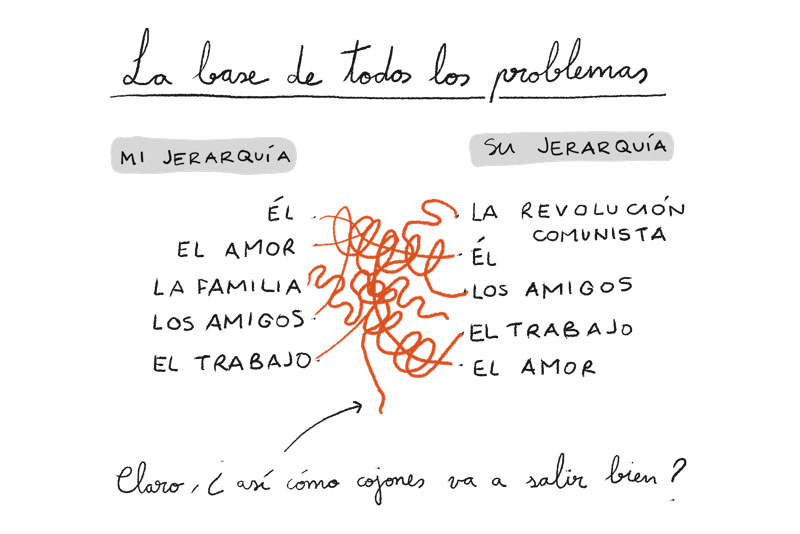 La base de todos los problemas
MI JERARQUÍA
ÉL
EL AMOR
LA FAMILIA
LOS AMIGOS
EL TRABAJO
SU JERARQUÍA
LA REVOLUCIÓN
COMUNISTA
ÉL
LOS AMIGOS
EL TRABAJO
EL AMOR
Claro, ¿así cómo cojones va a salir bien?